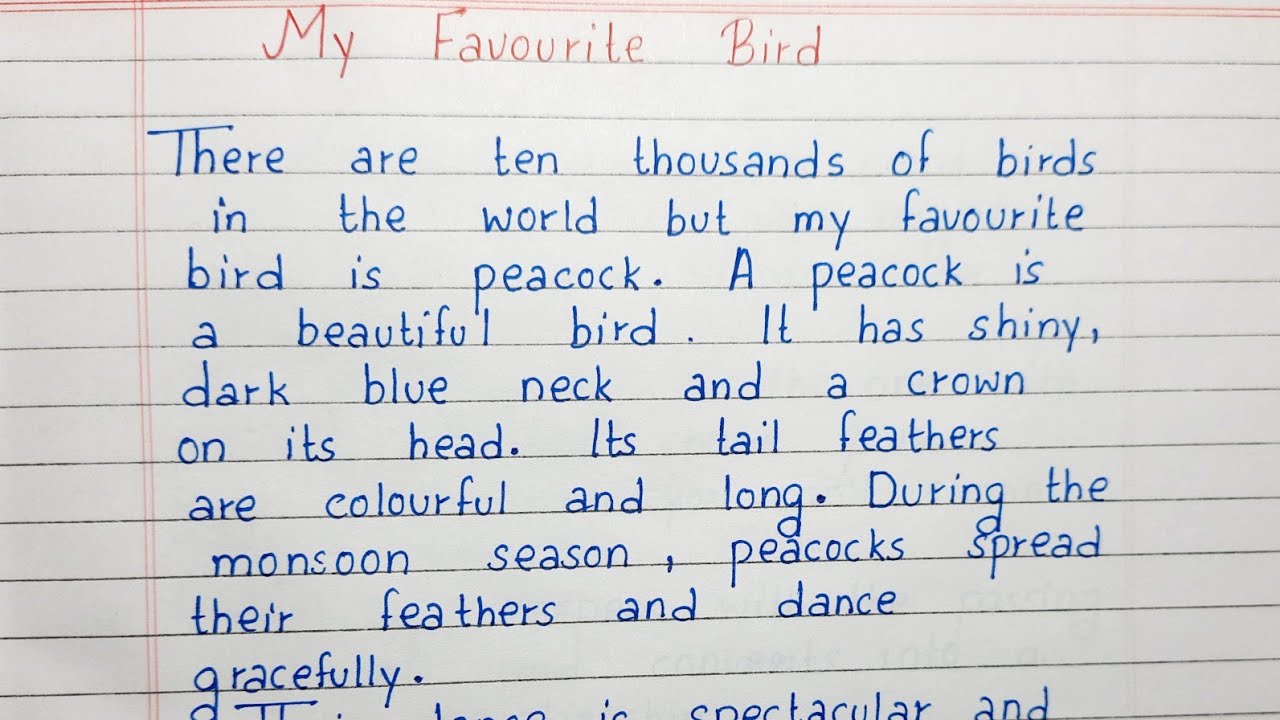 My Favourite Bird
There are ten thousands of birds
in the world but my favourite
bird is peacock. A peacock is
a beautiful bird. It has shiny,
dark blue neck and a crown
on its head. Its tail feathers
are colourful and long. During the
monsoon season, peacocks spread
their feathers and dance
gracefully.
is spectacular and